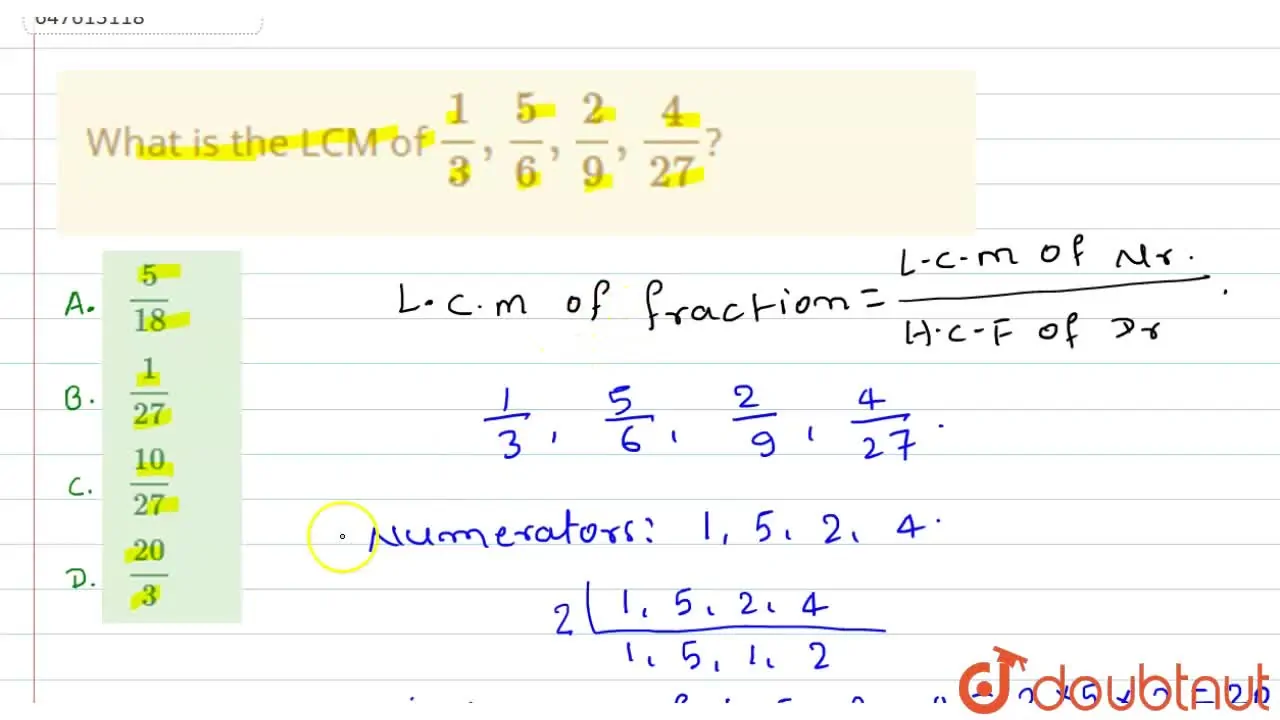 647613118
What is the LCM of 1/3, 5/6, 2/9, 4/27?
A. 5/18
B. 1/27
C. 10/27
D. 20/3
L.C.M of fraction = L.C.M of Nr. / H.C.F of Dr.
1/3, 5/6, 2/9, 4/27.
Numerators: 1, 5, 2, 4.
2 | 1, 5, 2, 4
1, 5, 1, 2
doubtnut